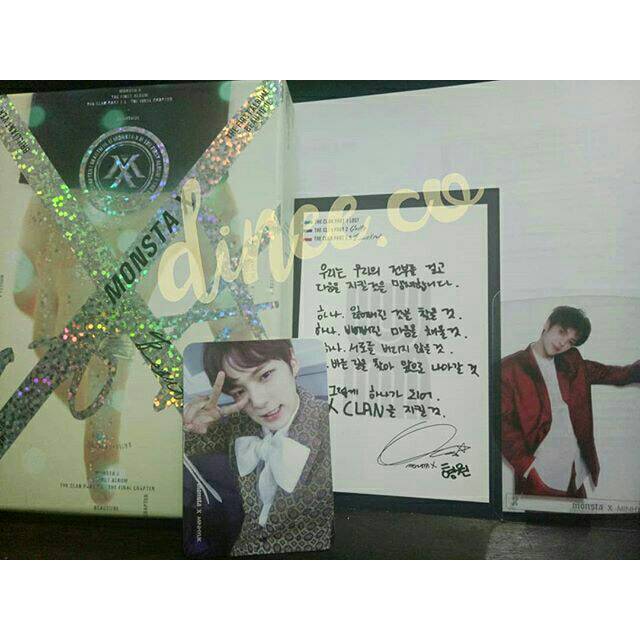 MONSTA X
THE FIRST ALBUM
THE CLAN PART 2.5 THE FINAL CHAPTER
BEAUTIFUL
MONSTA X
dinee.co
THE CLAN PART 1 LOST
THE CLAN PART 2 Guilty
우리는 우리의 전부를 걸고
다음을 지킬 것을 맹세합니다.
하나. 잃어버린 것을 찾을 것.
하나. 빼버린 마음을 채울 것.
하나. 서로를 버리지 않을 것.
바른 길을 찾아 앞으로 나아갈 것
그렇게 하나가 되어.
X CLAN을 지킬 것.
MONSTA X 형원
MONSTA X MINHYUK
monsta X MINH
MONSTA X
THE FIRST ALBUM
THE CLAN PART 2.5 THE FINAL CHAPTER
BEAUTIFUL